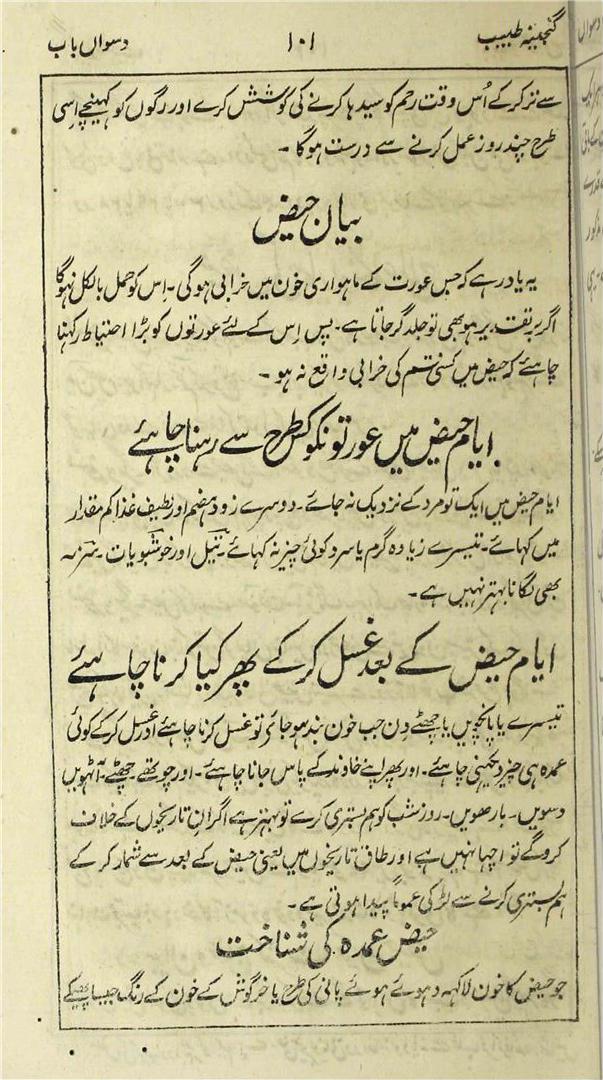 گنجینہ طبیب ۱۰۱ دسواں باب
سے تر کر کے اُس وقت رحم کو سیدہا کرنے کی کوشش کرے اور رگوں کو کہینچے اِسی
طرح چند روز عمل کرنے سے درست ہوگا ۔
بیان حیض
یہ یاد رہے کہ جس عورت کے ماہواری خون میں خرابی ہوگی ۔ اِس کو حمل بالکل نہوگا
اگر بہ تقدیر ہو بھی تو جلد گر جاتا ہے ۔ پس اِس کے لئے عورتوں کو بڑا احتیاط رکہنا
چاہئے کہ حیض میں کسی قسم کی خرابی واقع نہ ہو ۔
ایام حیض میں عورتونکو کس طرح سے رہنا چاہئے
ایام حیض میں ایک تو مرد کے نزدیک نہ جائے ۔ دوسرے زود ہضم اور لطیف غذا کم مقدار
میں کہائے ۔ تیسرے زیادہ گرم یا سرد کوئی چیز نہ کہائے ۔ تیل اور خوشبویات ۔ سرمہ
بھی لگانا بہتر نہیں ہے ۔
ایام حیض کے بعد غسل کر کے پھر کیا کرنا چاہئے
تیسرے یا پانچویں یا چھٹے دِن جب خون بند ہو جائے تو غسل کرنا چاہئے اور غسل کر کے کوئی
عمدہ ہی چیز دیکہنی چاہئے ۔ اور پھر اپنے خاوند کے پاس جانا چاہئے ۔ اور چوتھے ۔ چھٹے ۔ آٹہویں
دسویں ۔ بارھویں ۔ روز شب کو ہم بستری کرے تو بہتر ہے اگر ان تاریخوں کے خلاف
کروگے تو اچہا نہیں ہے اور طاق تاریخوں میں یعنی حیض کے بعد سے شمار کر کے
ہم بستری کرنے سے لڑکی عموماً پیدا ہوتی ہے ۔
حیض عمدہ کی شناخت
جو حیض کا خون لاکہہ دہوئے ہوئے پانی کی طرح یا خرگوش کے خون کے رنگ جیسا